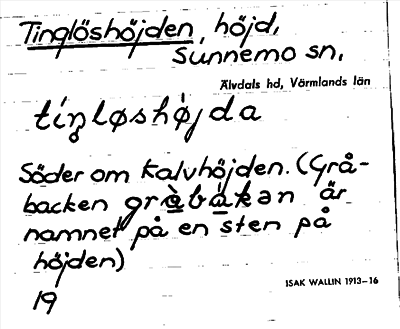 Tinglöshöjden, höjd,
Sunnemo sn.
Älvdals hd, Värmlands län
tiŋløshøjda
Söder om Kalvhöjden. (Grå-
backen gràbákan är
namnet på en sten på
höjden)
19
ISAK WALLIN 1913-16